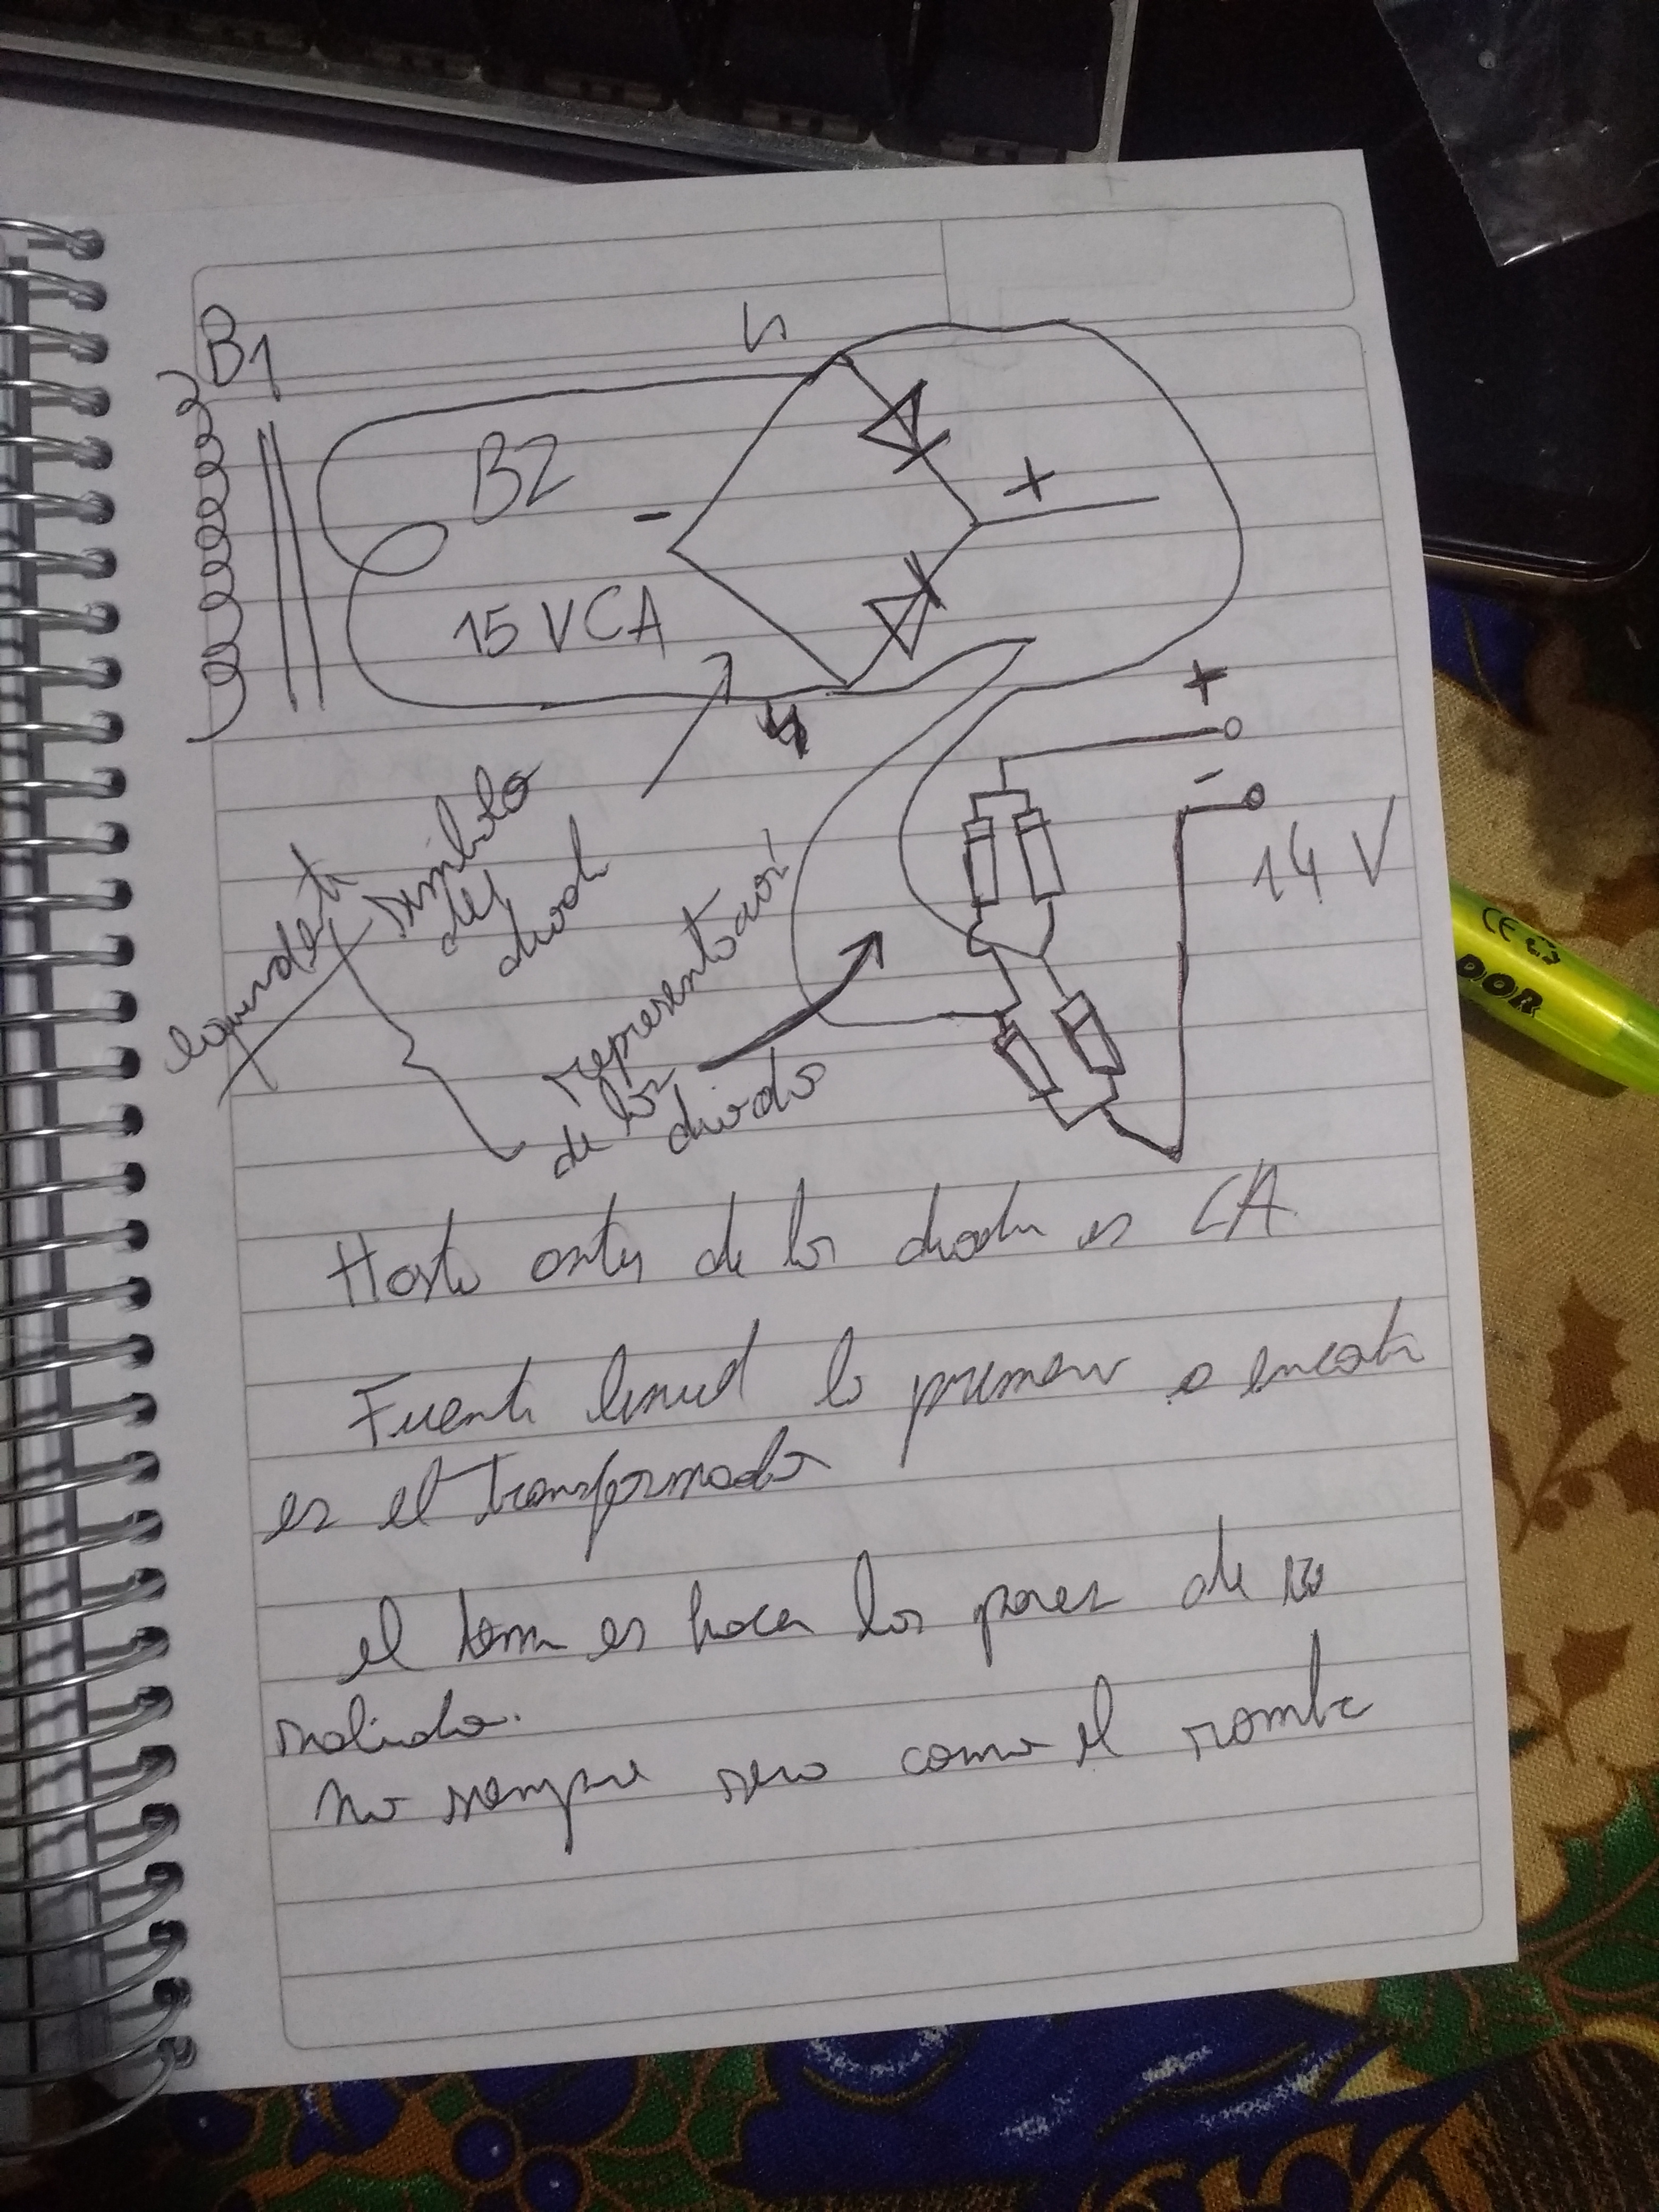 B1
B2
+
-
15 VCA
+
-
14 V
simbolo
del
representación
de los
diodos
Hasta antes de los diodos es CA
Fuente lineal lo primero a encontrar
es el transformador
el tema es hacer los pares de
salida.
No siempre sera como el rombo
CE
DOR